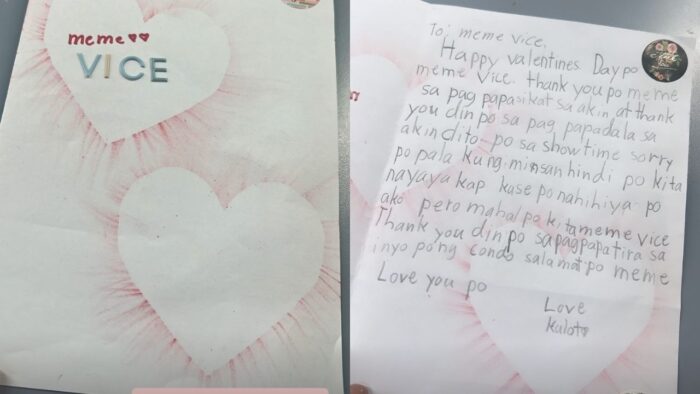 meme
VICE
To: meme vice.
Happy valentines Day po
meme vice. thank you po meme
sa pag papasikat sa akin, at thank
you din po sa pag papadala sa
akin dito po sa showtime sorry
po pala kung minsan hindi po kita
nayaya kap kase po nahihiya po
ako pero mahal po kita meme vice
Thank you din po sa pagpapatira sa
inyo pong condo salamat po meme
Love you po
Love
kulot